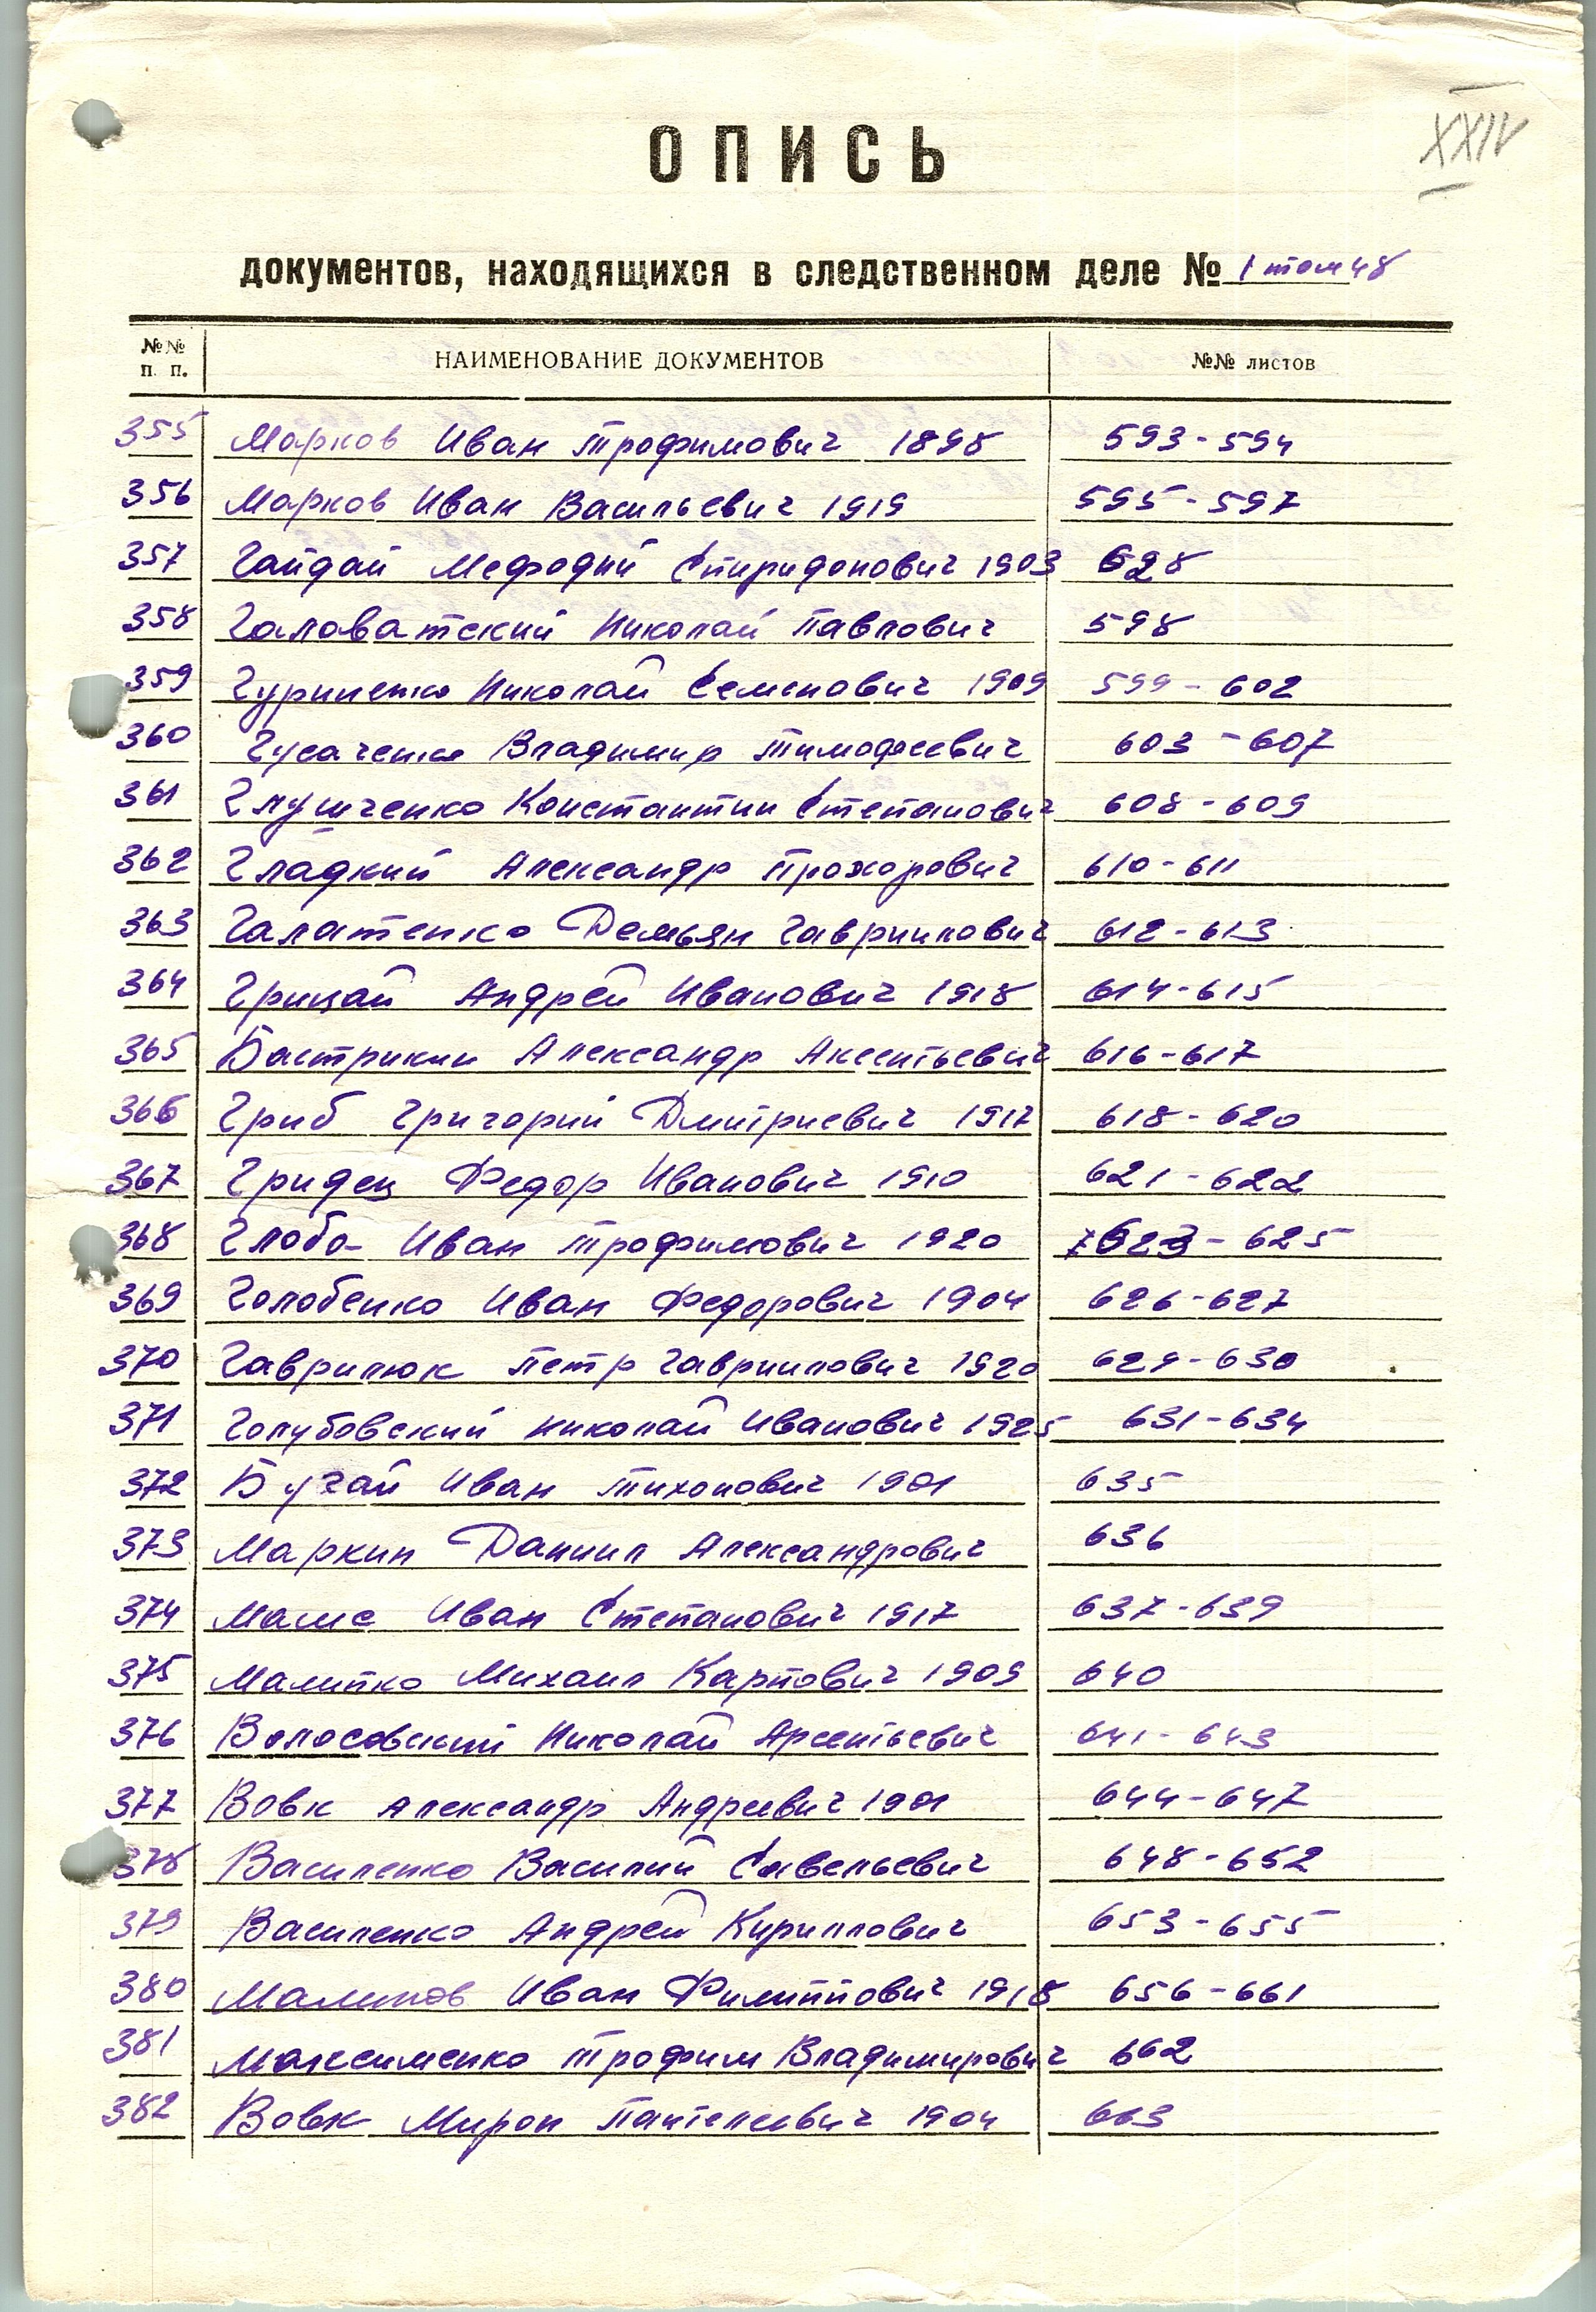 XXIV
ОПИСЬ
документов, находящихся в следственном деле № 1 том 48
№№ п. п. НАИМЕНОВАНИЕ ДОКУМЕНТОВ №№ листов
355 Марков Иван Трофимович 1898 593-594
356 Марков Иван Васильевич 1919 595-597
357 Гайдай Мефодий Спиридонович 1903 628
358 Галоватский Николай Павлович 598
359 Гуриненко Николай Семенович 1909 599-602
360 Гусаченко Владимир Тимофеевич 603-607
361 Глущенко Константин Степанович 608-609
362 Гладкий Александр Прохорович 610-611
363 Галатенко Демьян Гавриилович 612-613
364 Грицай Андрей Иванович 1918 614-615
365 Бастрикин Александр Аксентьевич 616-617
366 Гриб Григорий Дмитриевич 1917 618-620
367 Гридец Федор Иванович 1910 621-622
368 Глоба Иван Трофимович 1920 623-625
369 Голобенко Иван Федорович 1904 626-627
370 Гаврилюк Петр Гавриилович 1920 629-630
371 Голубовский Николай Иванович 1925 631-634
372 Бугай Иван Тихонович 1901 635
373 Маркин Даниил Александрович 636
374 Иван Степанович 1917 637-639
375 Михаил Карпович 1909 640
376 Волосовский Николай Арсентьевич 641-643
377 Вовк Александр Андреевич 1901 644-647
378 Василенко Василий Савельевич 648-652
379 Василенко Андрей Кириллович 653-655
380 Маликов Иван Филиппович 1918 656-661
381 Максименко Трофим Владимирович 662
382 Вовк Мирон Пантелеевич 1904 663